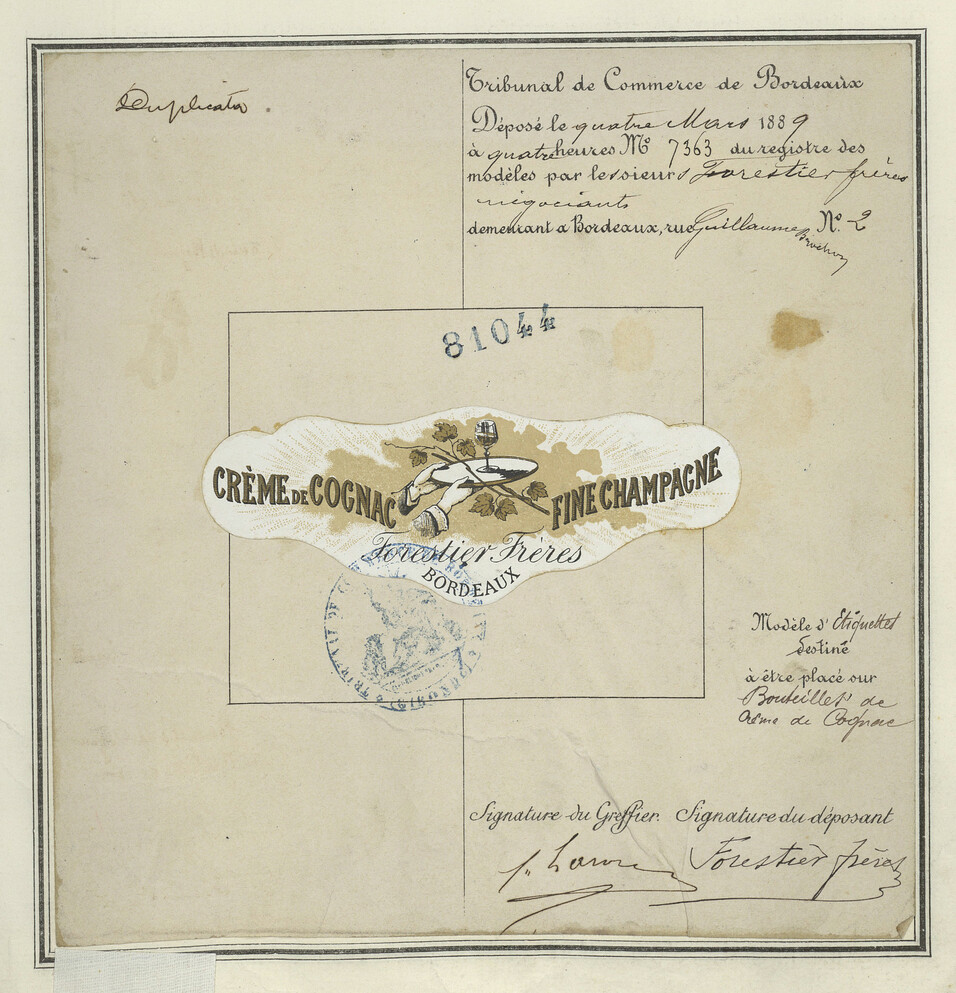 Duplicata
Tribunal de Commerce de Bordeaux
Déposé le quatre Mars 1889
à quatre heures No 7363 du registre des
modèles par les sieurs Forestier frères
négociants
demeurant à Bordeaux, rue Guillaume Brochon No 2
81044
CRÈME DE COGNAC FINE CHAMPAGNE
Forestier Frères
BORDEAUX
Modèle d'Etiquettes
destiné
à être placé sur
Bouteilles de
Crême de Cognac
Signature du Greffier. Signature du déposant
Forestier frères